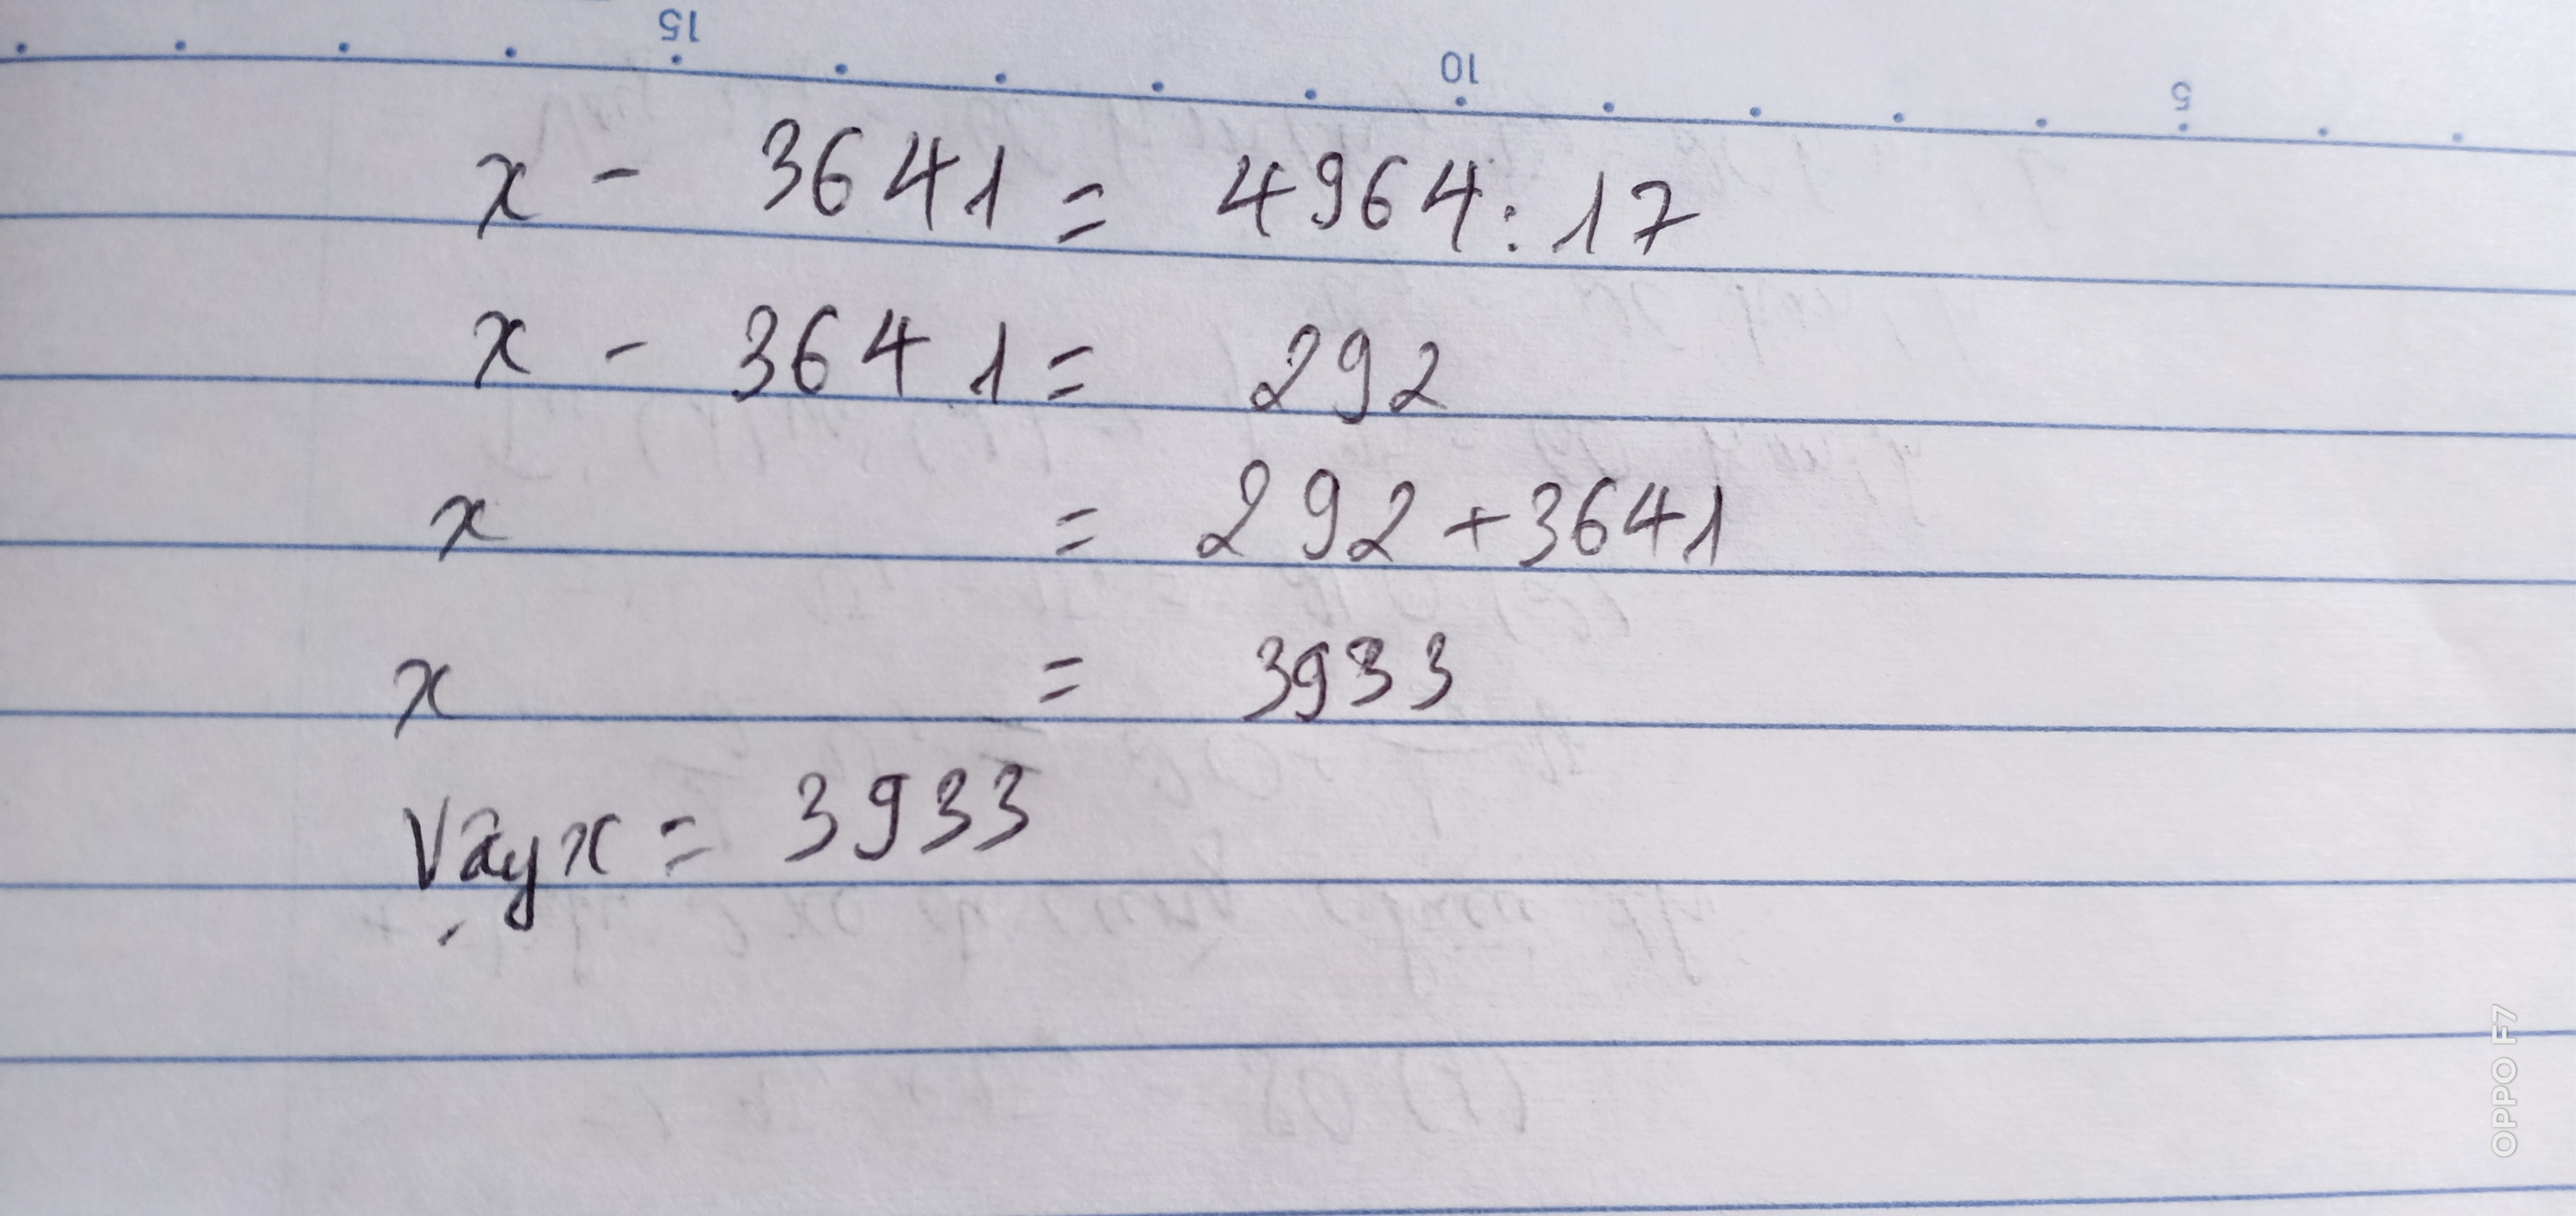 15 10 5
x - 3641 = 4964 : 17
x - 3641 = 292
x = 292 + 3641
x = 3933
Vậy x = 3933
OPPO F7